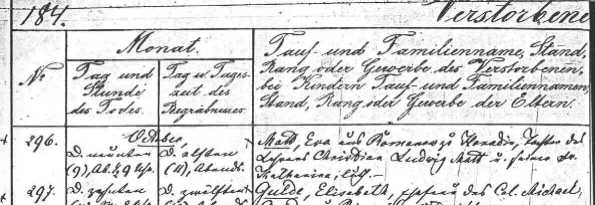 184.
Verstorbene
No
Monat.
Tag und
Stunde
des Todes.
Tag u. Tages-
zeit des
Begräbnisses
Tauf- und Familienname, Stand,
Rang oder Gewerbe des Verstorbenen,
bei Kindern Tauf- und Familiennamen,
Stand, Rang oder Gewerbe der Eltern.
296.
October,
D. neunten
(9), Ab. 9 Uhr.
D. elften
(11), Abends.
Matt, Eva aus Tochter des
Lehrers Christian Ludwig Matt u. seiner
Katharina, luth. –
297.
D. zehnten
D. zwölften
Gulde, Elisabeth, Ehefrau des Col. Michael